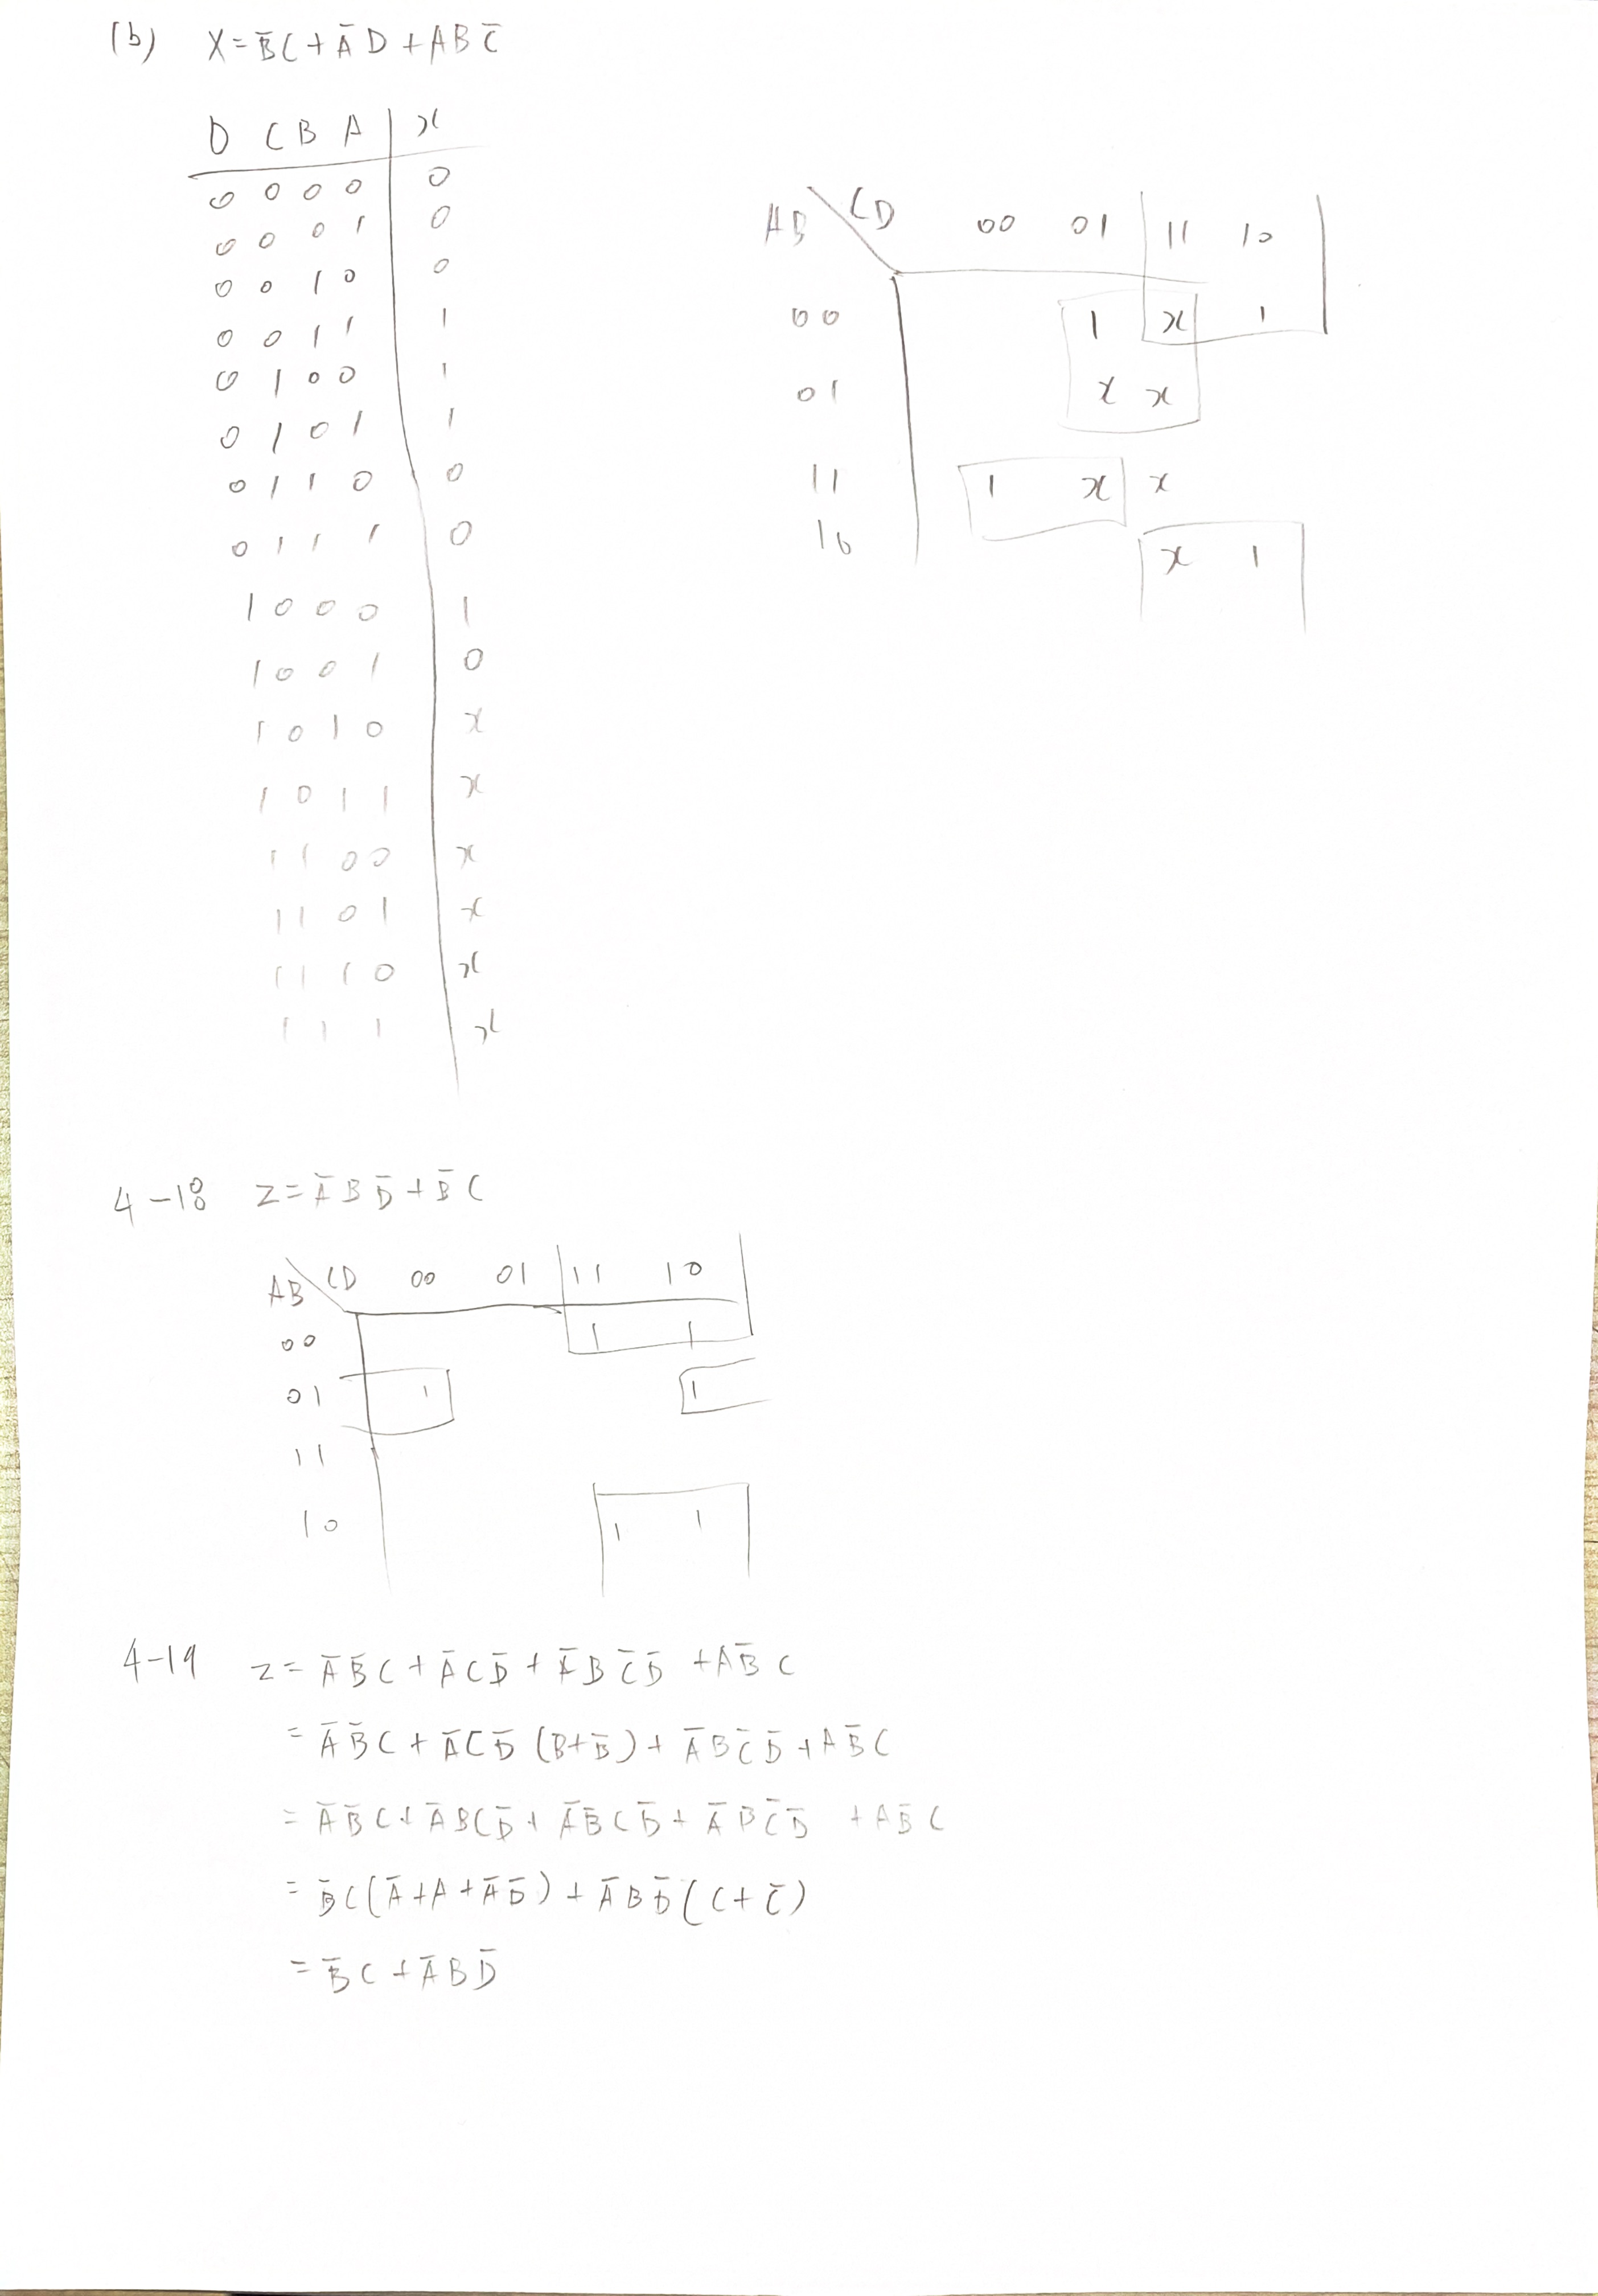 (b) X = B̅C + A̅D + ABC̅
D C B A | x
0 0 0 0 | 0
0 0 0 1 | 0
0 0 1 0 | 0
0 0 1 1 | 1
0 1 0 0 | 1
0 1 0 1 | 1
0 1 1 0 | 0
0 1 1 1 | 0
1 0 0 0 | 1
1 0 0 1 | 0
1 0 1 0 | x
1 0 1 1 | x
1 1 0 0 | x
1 1 0 1 | x
1 1 1 0 | x
1 1 1 | x
AB \ CD 00 01 11 10
00 1 x 1
01 x x
11 1 x x
10 x 1
4-18 z = A̅BD̅ + B̅C
AB \ CD 00 01 11 10
00 1 1
01 1 1
11
10 1 1
4-19 z = A̅B̅C + A̅CD̅ + A̅BC̅D̅ + AB̅C
= A̅B̅C + A̅CD̅(B+B̅) + A̅BC̅D̅ + AB̅C
= A̅B̅C + A̅BCD̅ + A̅B̅CD̅ + A̅BC̅D̅ + AB̅C
= B̅C(A̅+A+A̅D̅) + A̅BD̅(C+C̅)
= B̅C + A̅BD̅